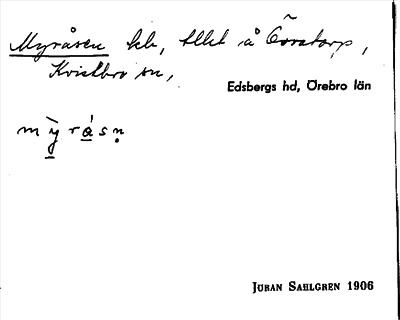 Myråsen kle, tllet å Öovstorp,
Kvistbro sn,
Edsbergs hd, Örebro län
mỳ̱rá̱sṇ
Jöran Sahlgren 1906